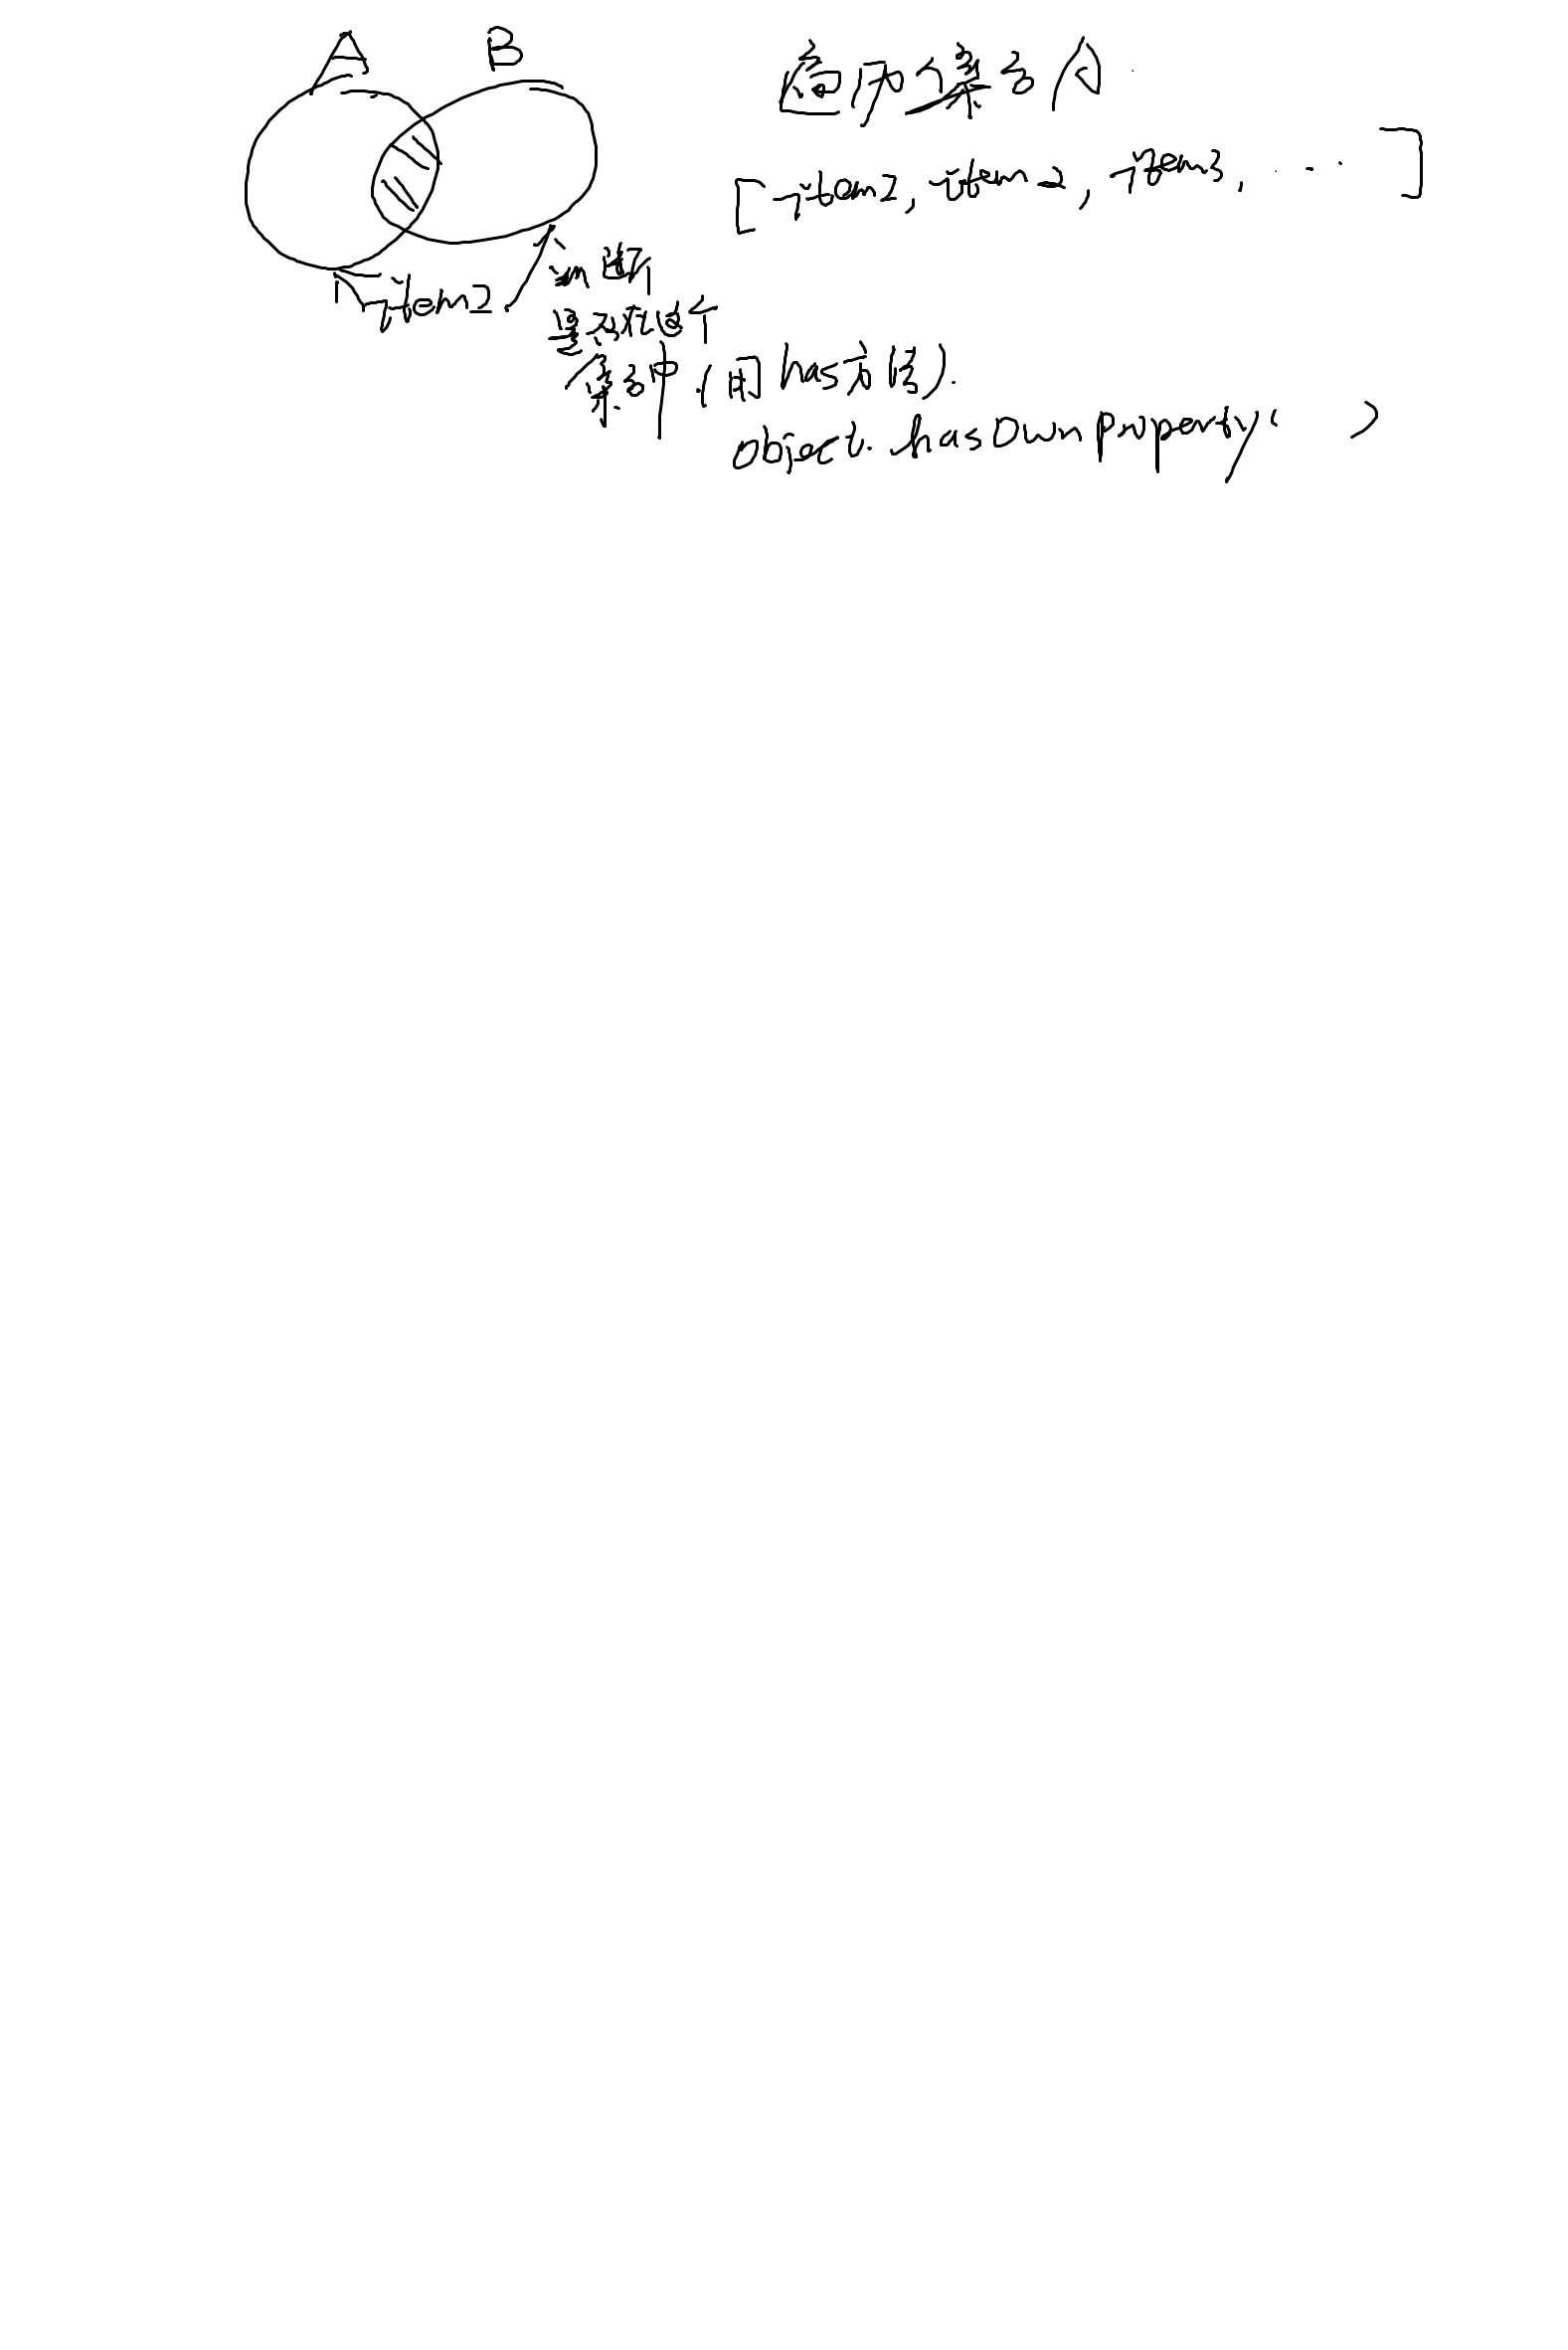 A B
遍历集合A
[item2, item2, item3, ... ]
item2
判断
是否在这个
集合中(用has方法).
object.hasOwnProperty( )